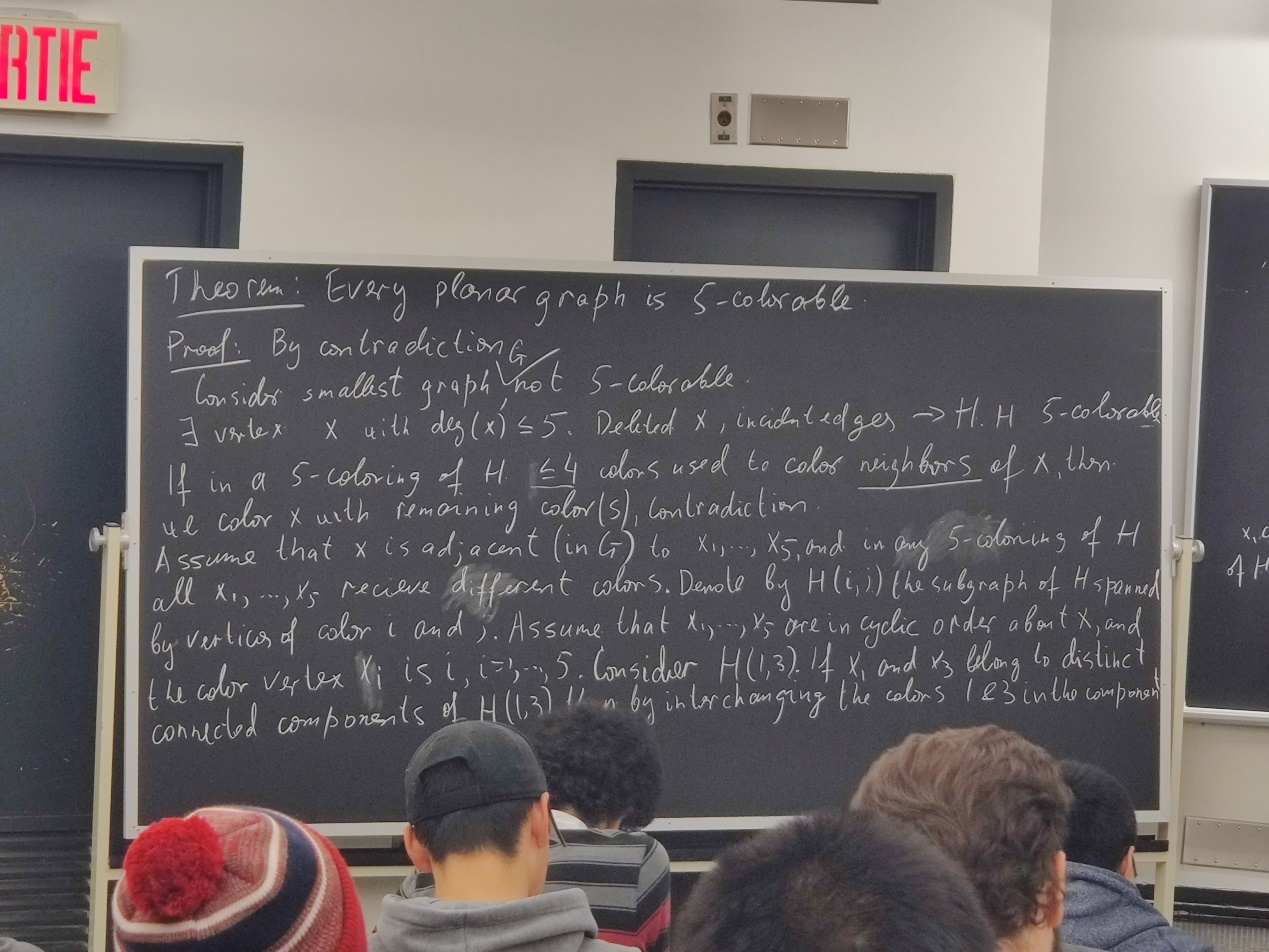 RTIE
Theorem: Every planar graph is 5-colorable.
Proof: By contradiction
Consider smallest graph G not 5-colorable.
∃ vertex x with deg(x) ≤ 5. Deleted x, incident edges → H. H 5-colorable
If in a 5-coloring of H ≤4 colors used to color neighbors of x, then
we color x with remaining color(s), contradiction.
Assume that x is adjacent (in G) to x₁,..., x₅, and in any 5-coloring of H
all x₁, ..., x₅ recieve different colors. Denote by H(i,j) the subgraph of H spanned
by vertices of color i and j. Assume that x₁,..., x₅ are in cyclic order about x, and
the color vertex xᵢ is i, i=1,..., 5. Consider H(1,3). If x₁ and x₃ belong to distinct
connected components of H(1,3) by interchanging the colors 1 & 3 in the component
x,
of H